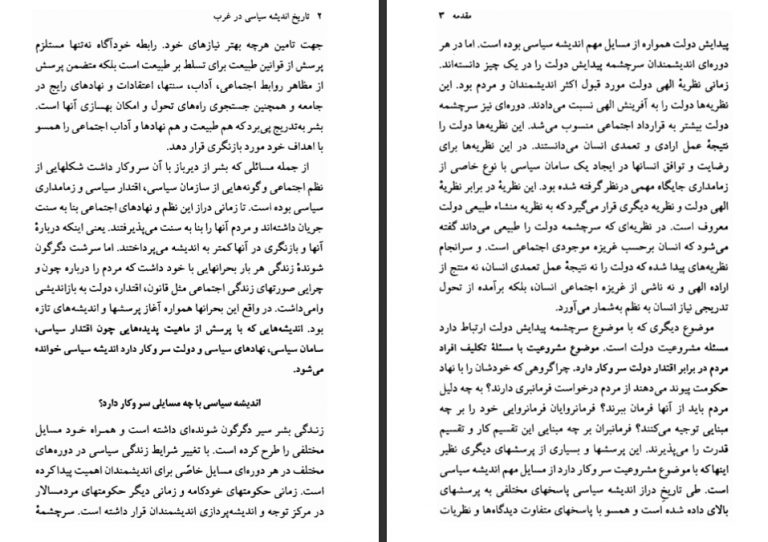 ۲ تاریخ اندیشه سیاسی در غرب
جهت تامین هرچه بهتر نیازهای خود. رابطه خودآگاه نه‌تنها مستلزم
پرسش از قوانین طبیعت برای تسلط بر طبیعت است بلکه متضمن پرسش
از مظاهر روابط اجتماعی، آداب، سنتها، اعتقادات و نهادهای رایج در
جامعه و همچنین جستجوی راه‌های تحول و امکان بهسازی آنها است.
بشر به‌تدریج پی‌برد که هم طبیعت و هم نهادها و آداب اجتماعی را همسو
با اهداف خود مورد بازنگری قرار دهد.
از جمله مسائلی که بشر از دیرباز با آن سر وکار داشت شکلهایی از
نظم اجتماعی و گونه‌هایی از سازمان سیاسی، اقتدار سیاسی و زمامداری
سیاسی بوده است. تا زمانی دراز این نظم و نهادهای اجتماعی بنا به سنت
جریان داشته‌اند و مردم آنها را بنا به سنت می‌پذیرفتند. یعنی اینکه دربارهٔ
آنها و بازنگری در آنها کمتر به اندیشه می‌پرداختند. اما سرشت دگرگون
شوندهٔ زندگی هر بار بحرانهایی با خود داشت که مردم را درباره چون و
چرایی صورتهای زندگی اجتماعی مثل قانون، اقتدار، دولت به بازاندیشی
وامی‌داشت. در واقع این بحرانها همواره آغاز پرسشها و اندیشه‌های تازه
بود. اندیشه‌هایی که با پرسش از ماهیت پدیده‌هایی چون اقتدار سیاسی،
سامان سیاسی، نهادهای سیاسی و دولت سر وکار دارد اندیشه سیاسی خوانده
می‌شود.
اندیشه سیاسی با چه مسایلی سر وکار دارد؟
زندگی بشر سیر دگرگون شونده‌ای داشته است و همراه خود مسایل
مختلفی را طرح کرده است. با تغییر شرایط زندگی سیاسی در دوره‌های
مختلف در هر دوره‌ای مسایل خاصّی برای اندیشمندان اهمیت پیدا کرده
است. زمانی حکومتهای خودکامه و زمانی دیگر حکومتهای مردمسالار
در مرکز توجه و اندیشه‌پردازی اندیشمندان قرار داشته است. سرچشمهٔ
مقدمه ۳
پیدایش دولت همواره از مسایل مهم اندیشه سیاسی بوده است. اما در هر
دوره‌ای اندیشمندان سرچشمه پیدایش دولت را در یک چیز دانسته‌اند.
زمانی نظریهٔ الهی دولت مورد قبول اکثر اندیشمندان و مردم بود. این
نظریه‌ها دولت را به آفرینش الهی نسبت می‌دادند. دوره‌ای نیز سرچشمه
دولت بیشتر به قرارداد اجتماعی منسوب می‌شد. این نظریه‌ها دولت را
نتیجهٔ عمل ارادی و تعمدی انسان می‌دانستند. در این نظریه‌ها برای
رضایت و توافق انسانها در ایجاد یک سامان سیاسی با نوع خاصی از
زمامداری جایگاه مهمی درنظر گرفته شده بود. این نظریهٔ در برابر نظریهٔ
الهی دولت و نظریه دیگری قرار می‌گیرد که به نظریه منشاء طبیعی دولت
معروف است. در نظریه‌ای که سرچشمه دولت را طبیعی می‌داند گفته
می‌شود که انسان برحسب غریزه موجودی اجتماعی است. و سرانجام
نظریه‌های پیدا شده که دولت را نه نتیجهٔ عمل تعمدی انسان، نه منتج از
اراده الهی و نه ناشی از غریزه اجتماعی انسان، بلکه برآمده از تحول
تدریجی نیاز انسان به نظم به‌شمار می‌آورد.
موضوع دیگری که با موضوع سرچشمه پیدایش دولت ارتباط دارد
مسئله مشروعیت دولت است. موضوع مشروعیت با مسئلهٔ تکلیف افراد
مردم در برابر اقتدار دولت سر وکار دارد. چراگروهی که خودشان را با نهاد
حکومت پیوند می‌دهند از مردم درخواست فرمانبری دارند؟ به چه دلیل
مردم باید از آنها فرمان ببرند؟ فرمانروایان فرمانروایی خود را بر چه
مبنایی توجیه می‌کنند؟ فرمانبران بر چه مبنایی این تقسیم کار و تقسیم
قدرت را می‌پذیرند. این پرسشها و بسیاری از پرسشهای دیگری نظیر
اینها که با موضوع مشروعیت سر وکار دارد از مسایل مهم اندیشه سیاسی
است. طی تاریخ دراز اندیشه سیاسی پاسخهای مختلفی به پرسشهای
بالای داده شده است و همسو با پاسخهای متفاوت دیدگاه‌ها و نظریات